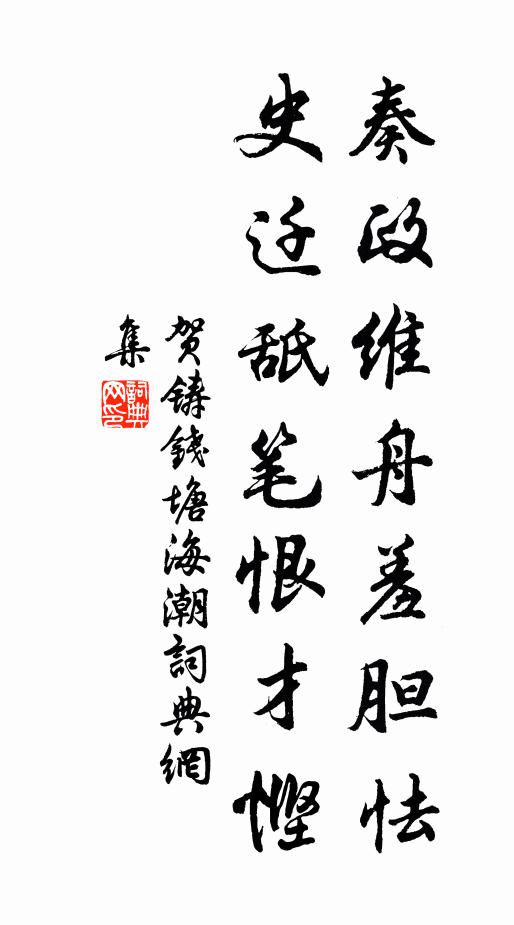 奏政维舟羞胆怯
史迁舐笔恨才悭
贺铸錢塘海潮詞典網
集
詞典
网印